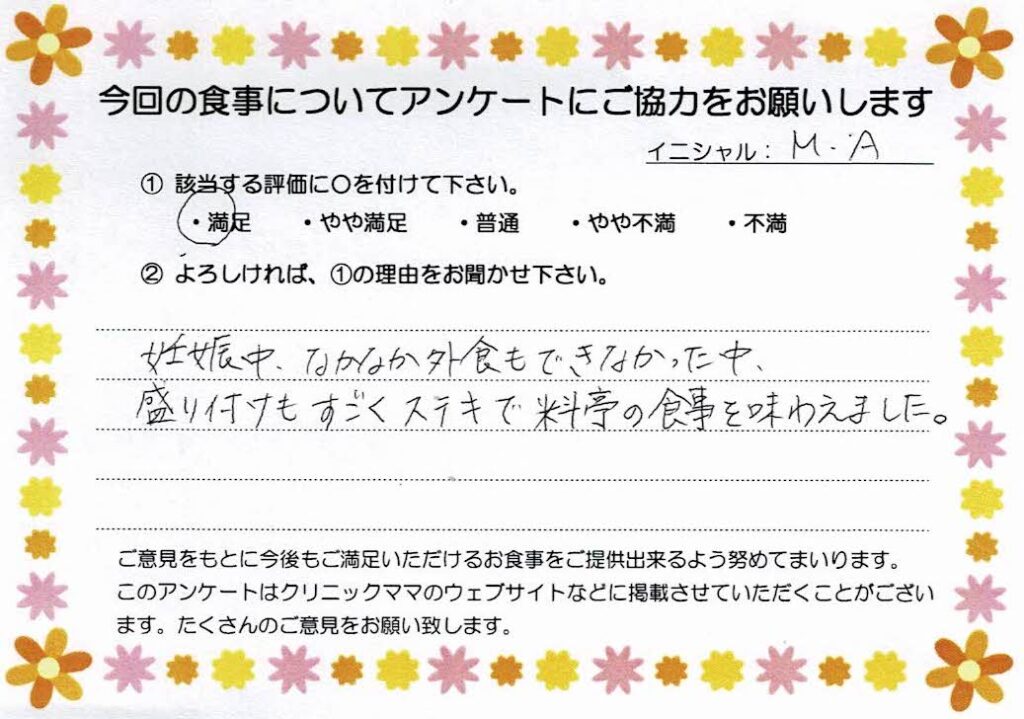 今回の食事についてアンケートにご協力をお願いします
イニシャル： M・A
① 該当する評価に○を付けて下さい。
・満足 ・やや満足 ・普通 ・やや不満 ・不満
② よろしければ、①の理由をお聞かせ下さい。
妊娠中、なかなか外食もできなかった中、
盛り付けもすごくステキで料亭の食事を味わえました。
ご意見をもとに今後もご満足いただけるお食事をご提供出来るよう努めてまいります。
このアンケートはクリニックママのウェブサイトなどに掲載させていただくことがござい
ます。たくさんのご意見をお願い致します。